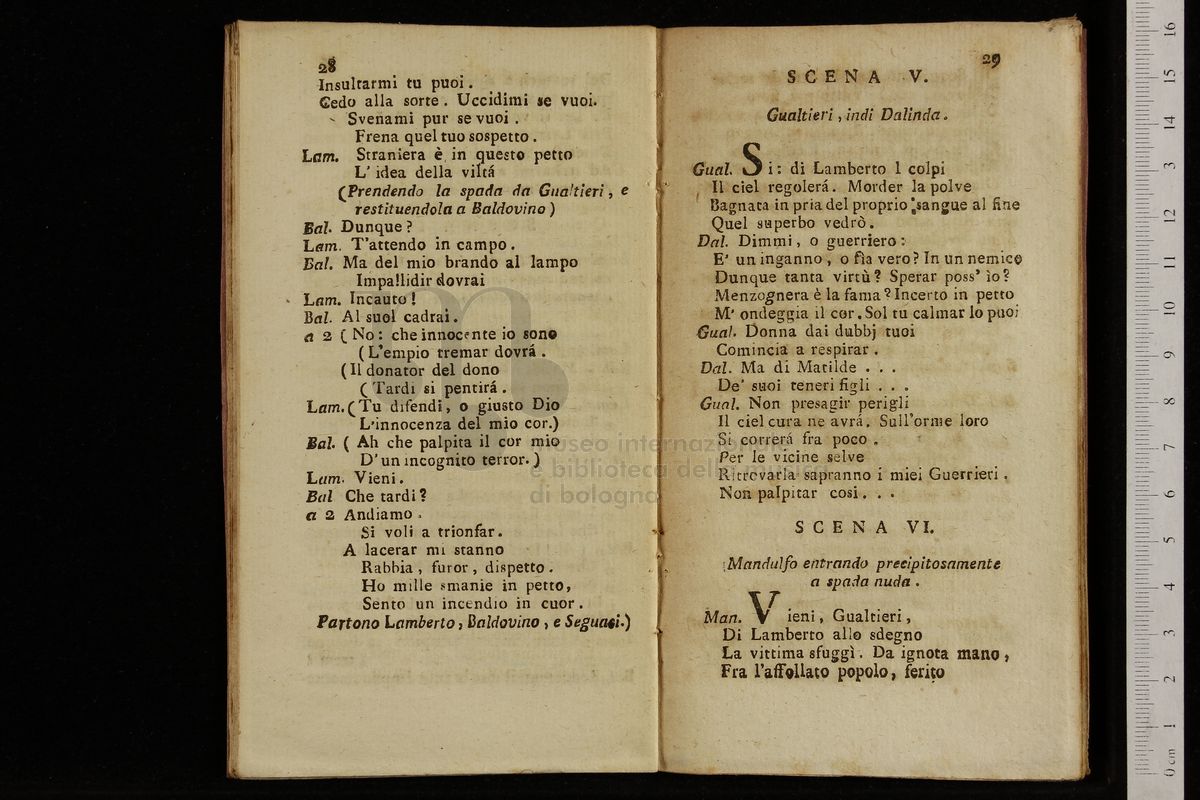 28
Insultarmi tu puoi.
Cedo alla sorte. Uccidimi se vuoi.
Svenami pur se vuoi.
Frena quel tuo sospetto.
Lam. Straniera è in questo petto
L' idea della viltá
(Prendendo la spada da Gualtieri, e
restituendola a Baldovino)
Bal. Dunque?
Lam. T'attendo in campo.
Bal. Ma del mio brando al lampo
Impallidir dovrai
Lam. Incauto!
Bal. Al suol cadrai.
a 2 (No: che innocente io sono
(L'empio tremar dovrá.
(Il donator del dono
(Tardi si pentirá.
Lam. (Tu difendi, o giusto Dio
L'innocenza del mio cor.)
Bal. (Ah che palpita il cor mio
D'un incognito terror.)
Lam. Vieni.
Bal Che tardi?
a 2 Andiamo.
Si voli a trionfar.
A lacerar mi stanno
Rabbia, furor, dispetto.
Ho mille smanie in petto,
Sento un incendio in cuor.
Partono Lamberto, Baldovino, e Seguasi.)
29
SCENA V.
Gualtieri, indi Dalinda.
Gual. Si: di Lamberto I colpi
Il ciel regolerá. Morder la polve
Bagnata in pria del proprio sangue al fine
Quel superbo vedrò.
Dal. Dimmi, o guerriero:
E' un inganno, o fia vero? In un nemico
Dunque tanta virtù? Sperar poss' ìo?
Menzognera è la fama? Incerto in petto
M' ondeggia il cor. Sol tu calmar lo puoi
Gual. Donna dai dubbj tuoi
Comincia a respirar.
Dal. Ma di Matilde . . .
De' suoi teneri figli . . .
Gual. Non presagir perigli
Il ciel cura ne avrá. Sull'orme loro
Si correrá fra poco.
Per le vicine selve
Ritrovarla sapranno i miei Guerrieri.
Non palpitar cosi. . .
SCENA VI.
Mandulfo entrando precipitosamente
a spada nuda.
Man. Vieni, Gualtieri,
Di Lamberto allo sdegno
La vittima sfuggì. Da ignota mano,
Fra l'affollato popolo, ferito
museo internazionale
e biblioteca della musica
di bologna
0 cm 1 2 3 4 5 6 7 8 9 10 11 12 13 14 15 16